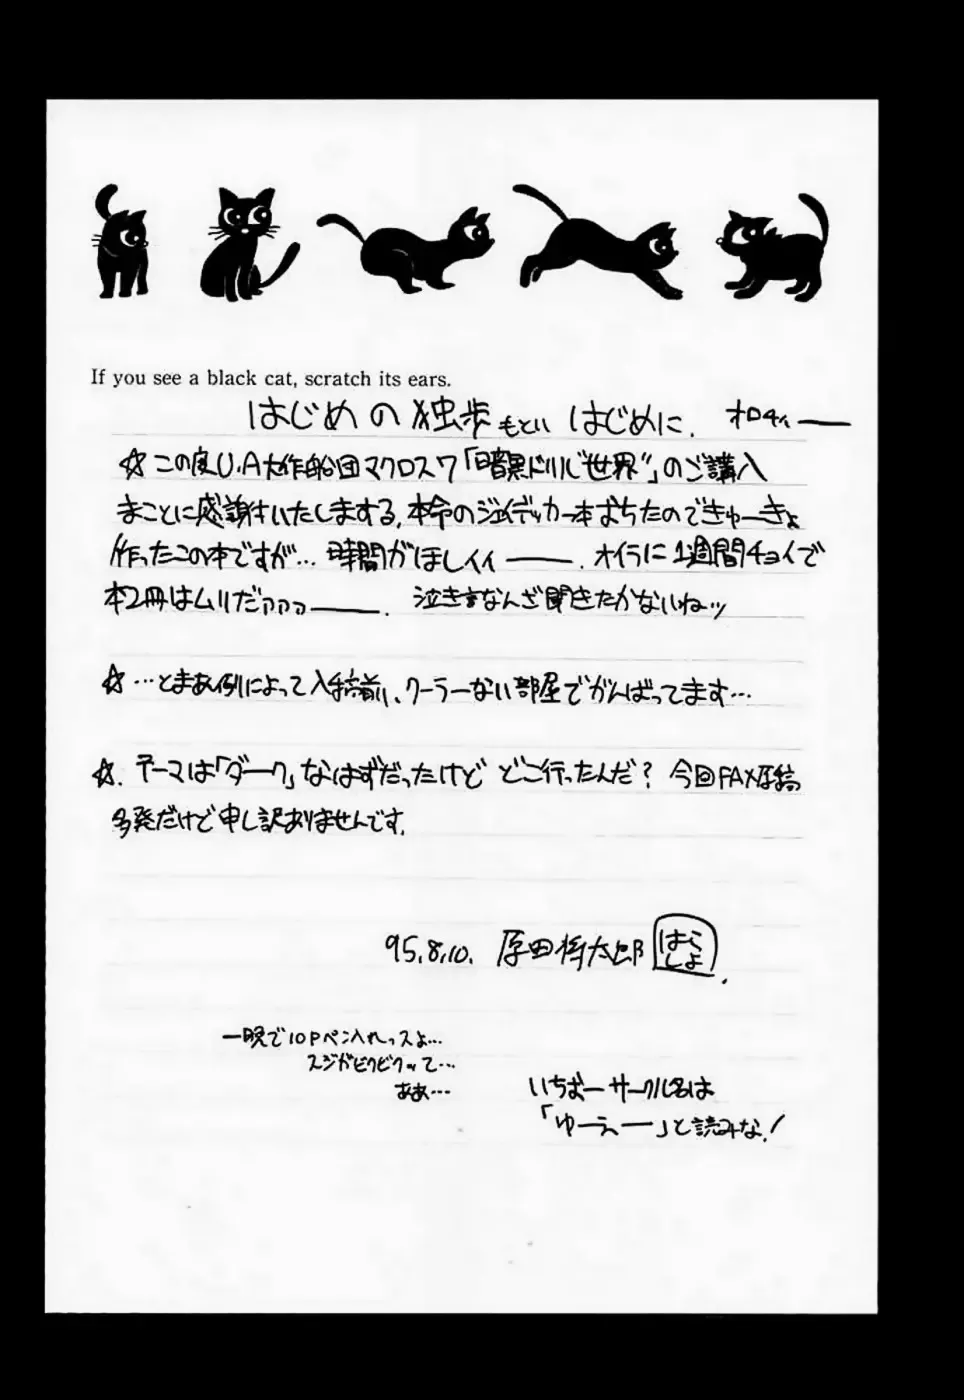 If you see a black cat, scratch its ears.
はじめの独歩 もとい はじめに. オロチィ――
☆この度U.A大作船団マクロス7「暗黒ドリル世界」のご購入
まことに感謝いたしまする,本命のジェイデッカー本おちたのできゅーきょ
作ったこの本ですが… 時間がほしィィ――. オイラに1週間チョイで
本2冊はムリだァァァ――. 泣き言なんざ聞きたかないねッ
☆…とまあ例によって入稿前、クーラーない部屋でがんばってます…
☆. テーマは「ダーク」なはずだったけど どこ行ったんだ? 今回FAX原稿
多発だけど申し訳ありませんです.
95.8.10. 原田将太郎 はらしょ.
一晩で10Pペン入れっスよ…
スジがピクピクッて…
ああ…
いちおーサークル名は
「ゆーえー」と読みな!